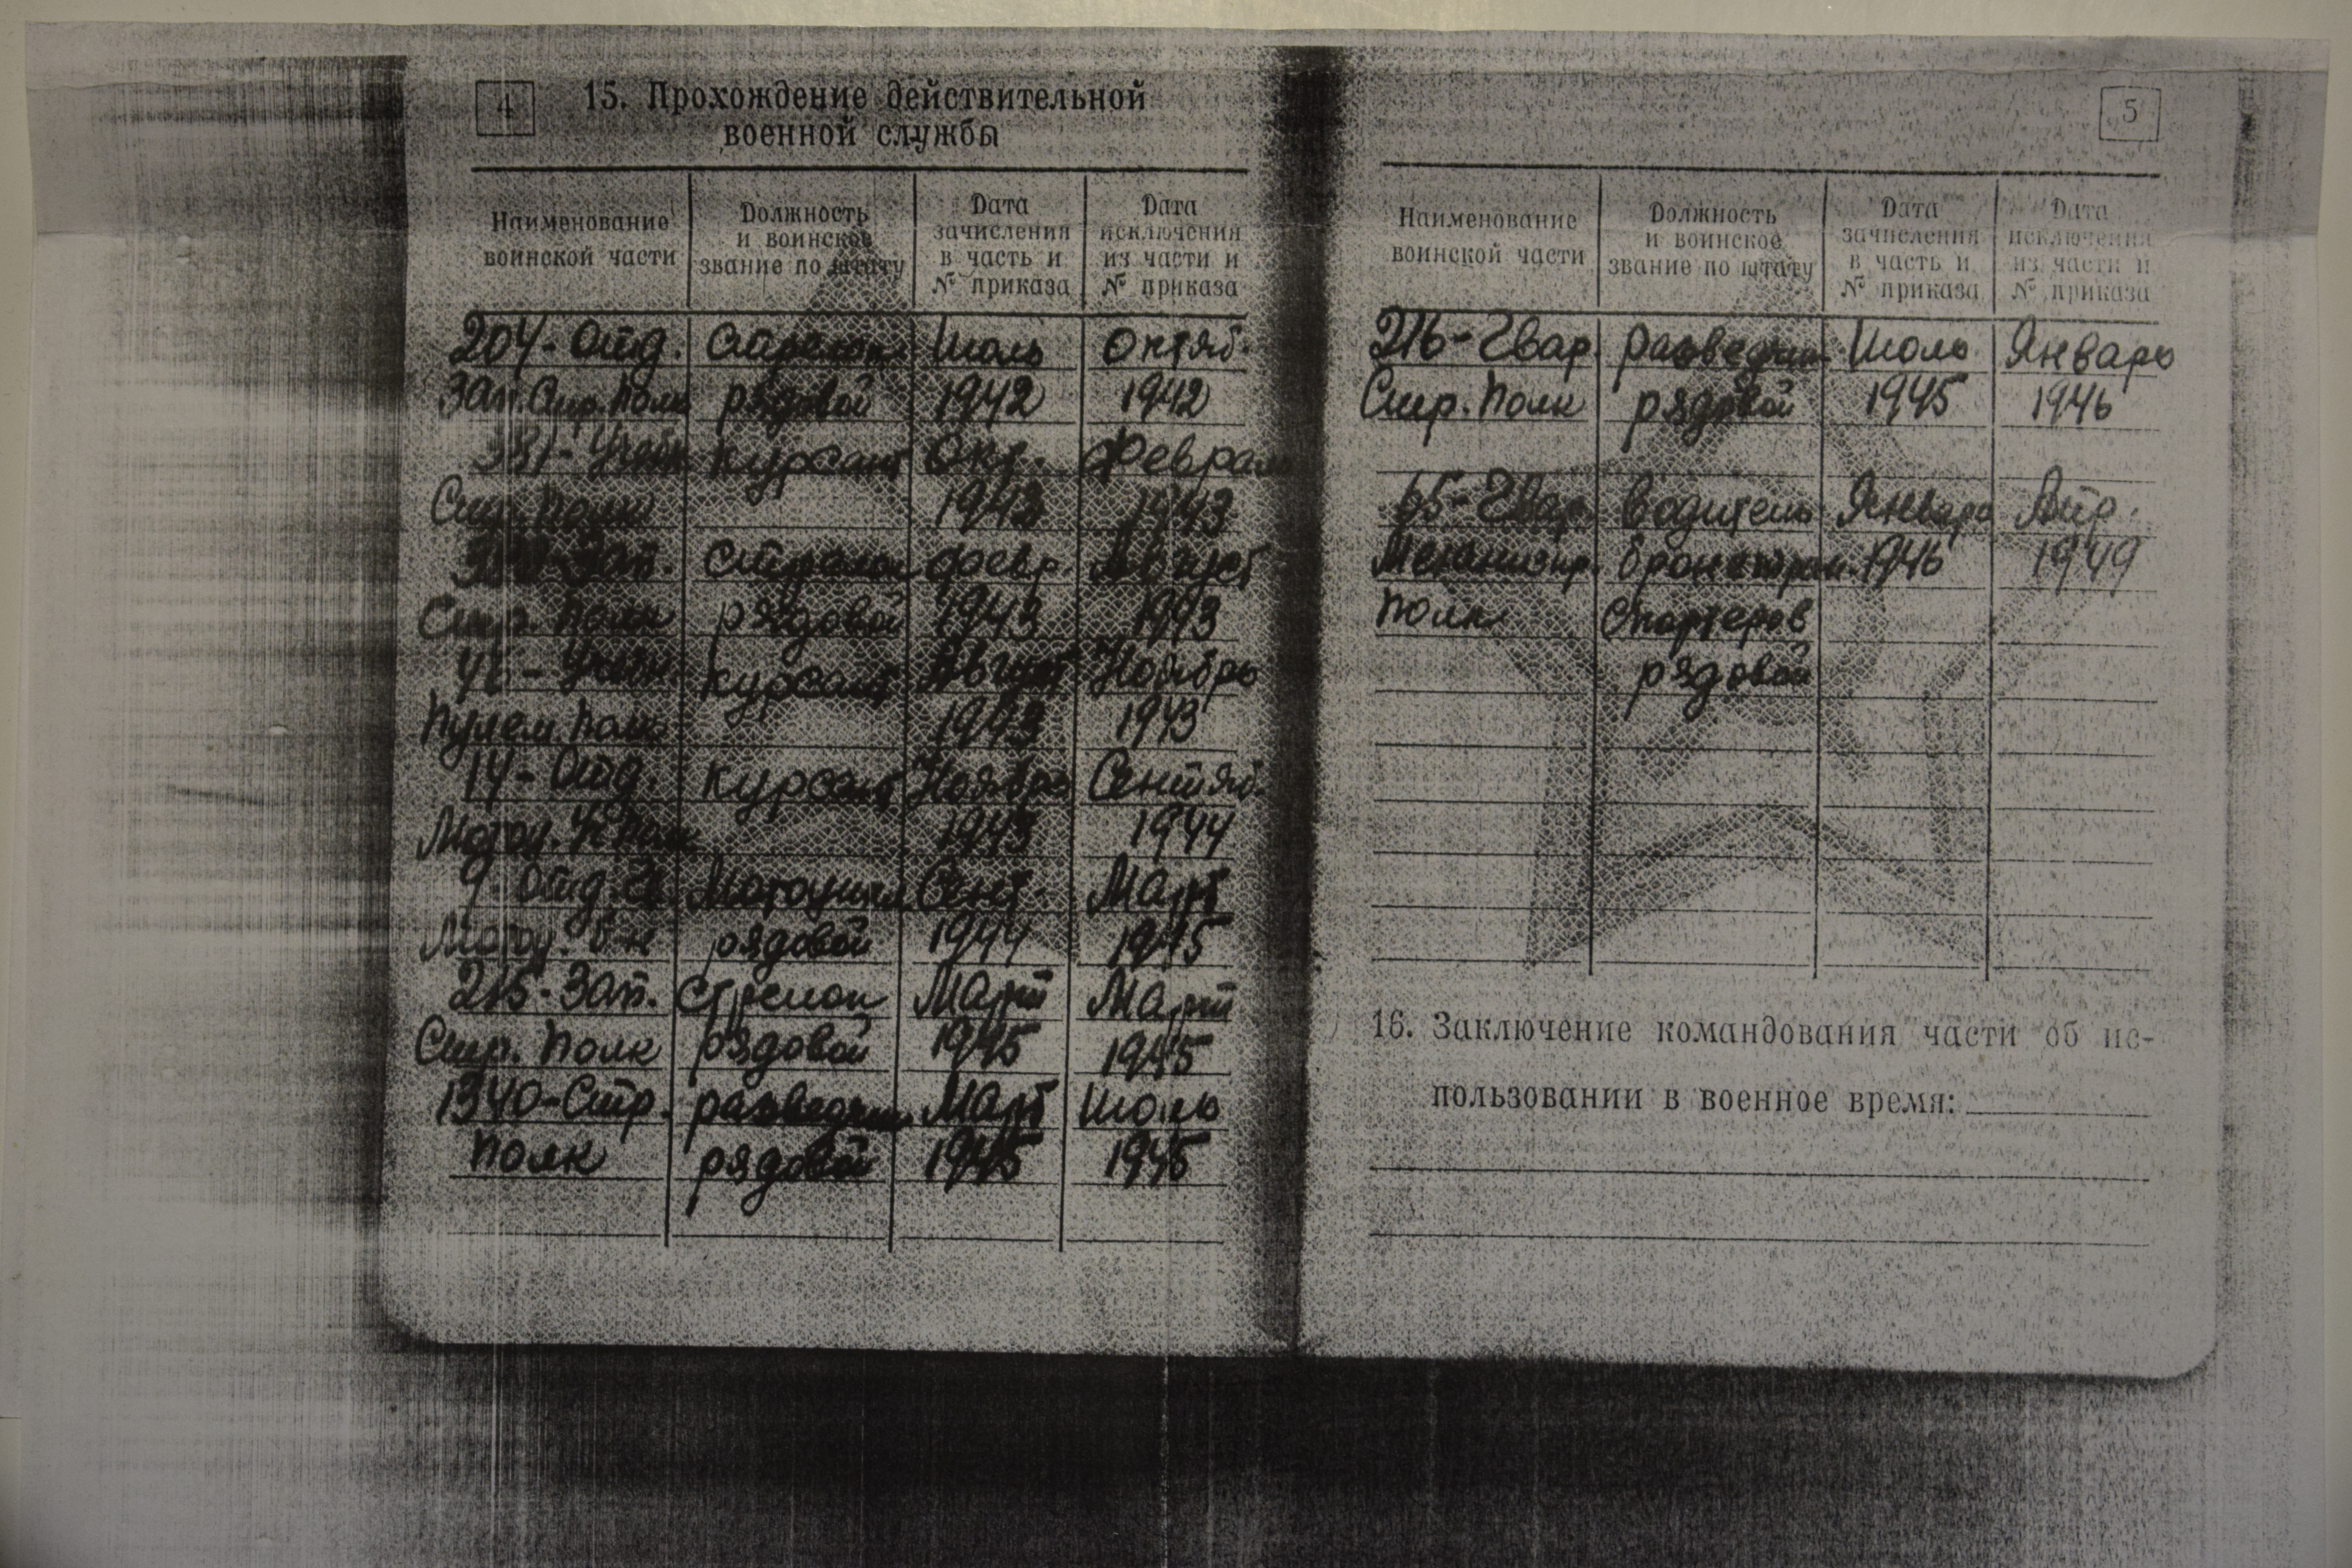 4
15. Прохождение действительной
военной службы
Наименование воинской части
Должность и воинское звание по штату
Дата зачисления в часть и № приказа
Дата исключения из части и № приказа
204-Отд. стрелок Июль Октяб.
Зап. Стр. Полк рядовой 1942 1942
381-Учебн курсант Окт. Феврал
Стр. Полк 1942 1943
Зап. стрелок февр. Август
Стр. Полк рядовой 1943 1943
46-Учебн курсант Август Ноябрь
Пулем. Полк 1943 1943
14-Отд. курсант Ноябрь Сентяб.
Мотоц. Уч Полк 1943 1944
9 Отд. Гв Мотоцикл Сент. Март
Мотоц. б-н рядовой 1944 1945
215-Зап. стрелок Март Март
Стр. Полк рядовой 1945 1945
1340-Стр. разведчик Март Июль
Полк рядовой 1945 1945
5
Наименование воинской части
Должность и воинское звание по штату
Дата зачисления в часть и № приказа
Дата исключения из части и № приказа
216-Гвар. разведчик Июль Январь
Стр. Полк рядовой 1945 1946
65-Гвар. водитель Январь Апр.
Механизир. бронетран. 1946 1949
Полк спортеров
рядовой
16. Заключение командования части об ис-
пользовании в военное время: